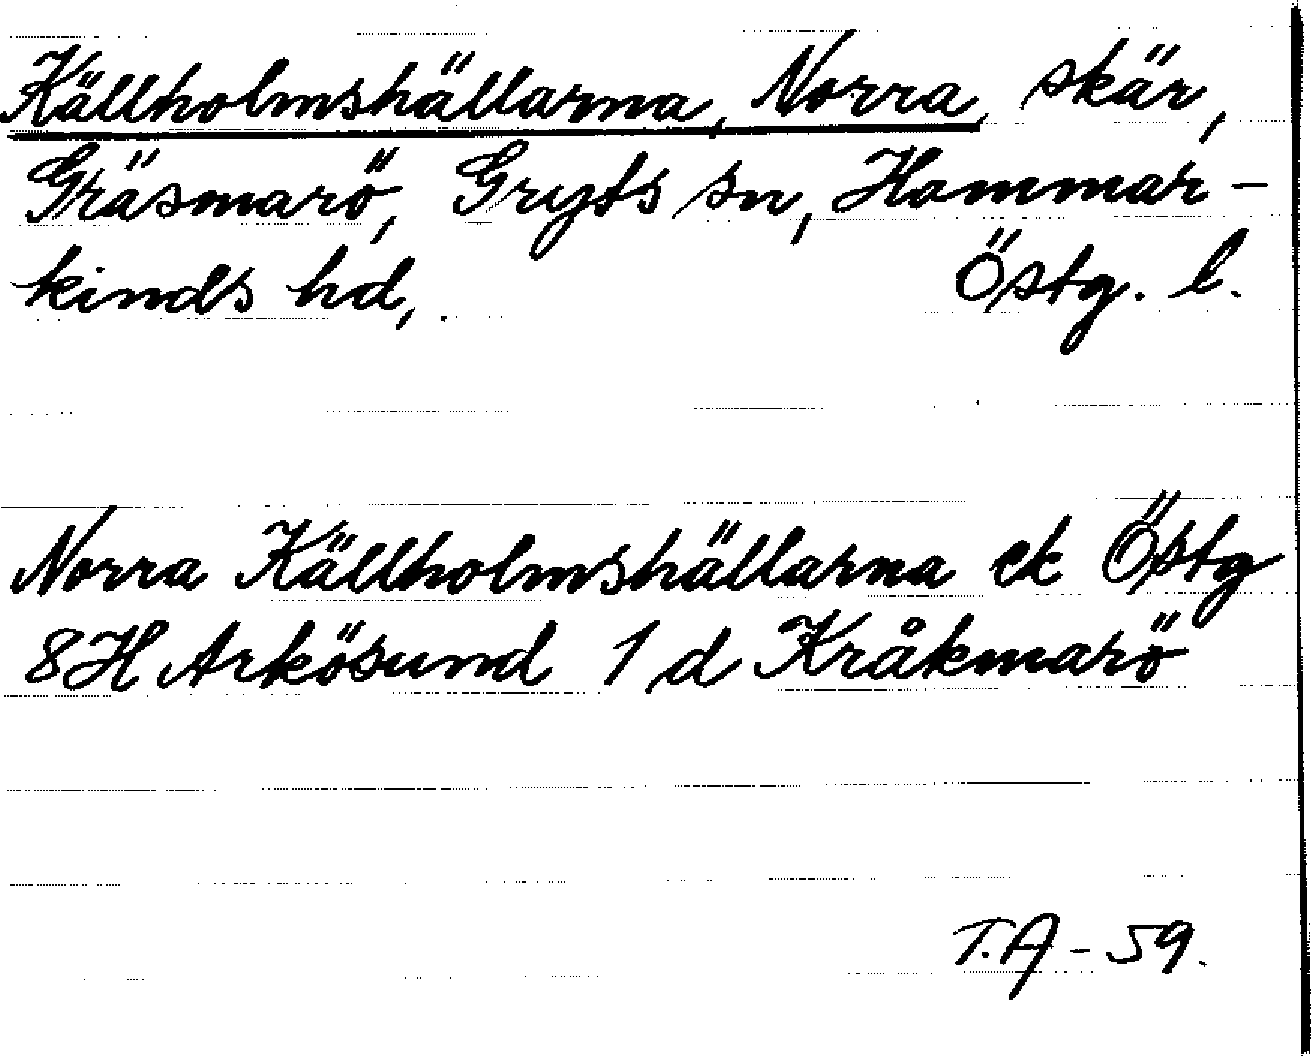 Källholmshällarna, Norra, skär,
Gräsmarö, Gryts sn, Hammar-
kinds hd, Östg. l.
Norra Källholmshällarna ek Östg
8H Arkösund 1 d Kråkmarö
T.A - 59.